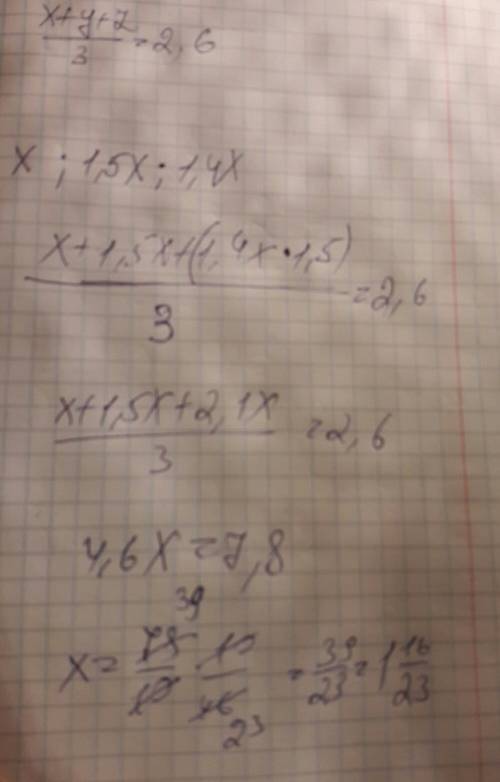 (x+y+z)/3 = 2,6
x ; 1,5x ; 1,4x
(x+1,5x+(1,4x·1,5))/3 = 2,6
(x+1,5x+2,1x)/3 = 2,6
4,6x = 7,8
39
x = 78/10 · 10/46 = 39/23 = 1 16/23
23